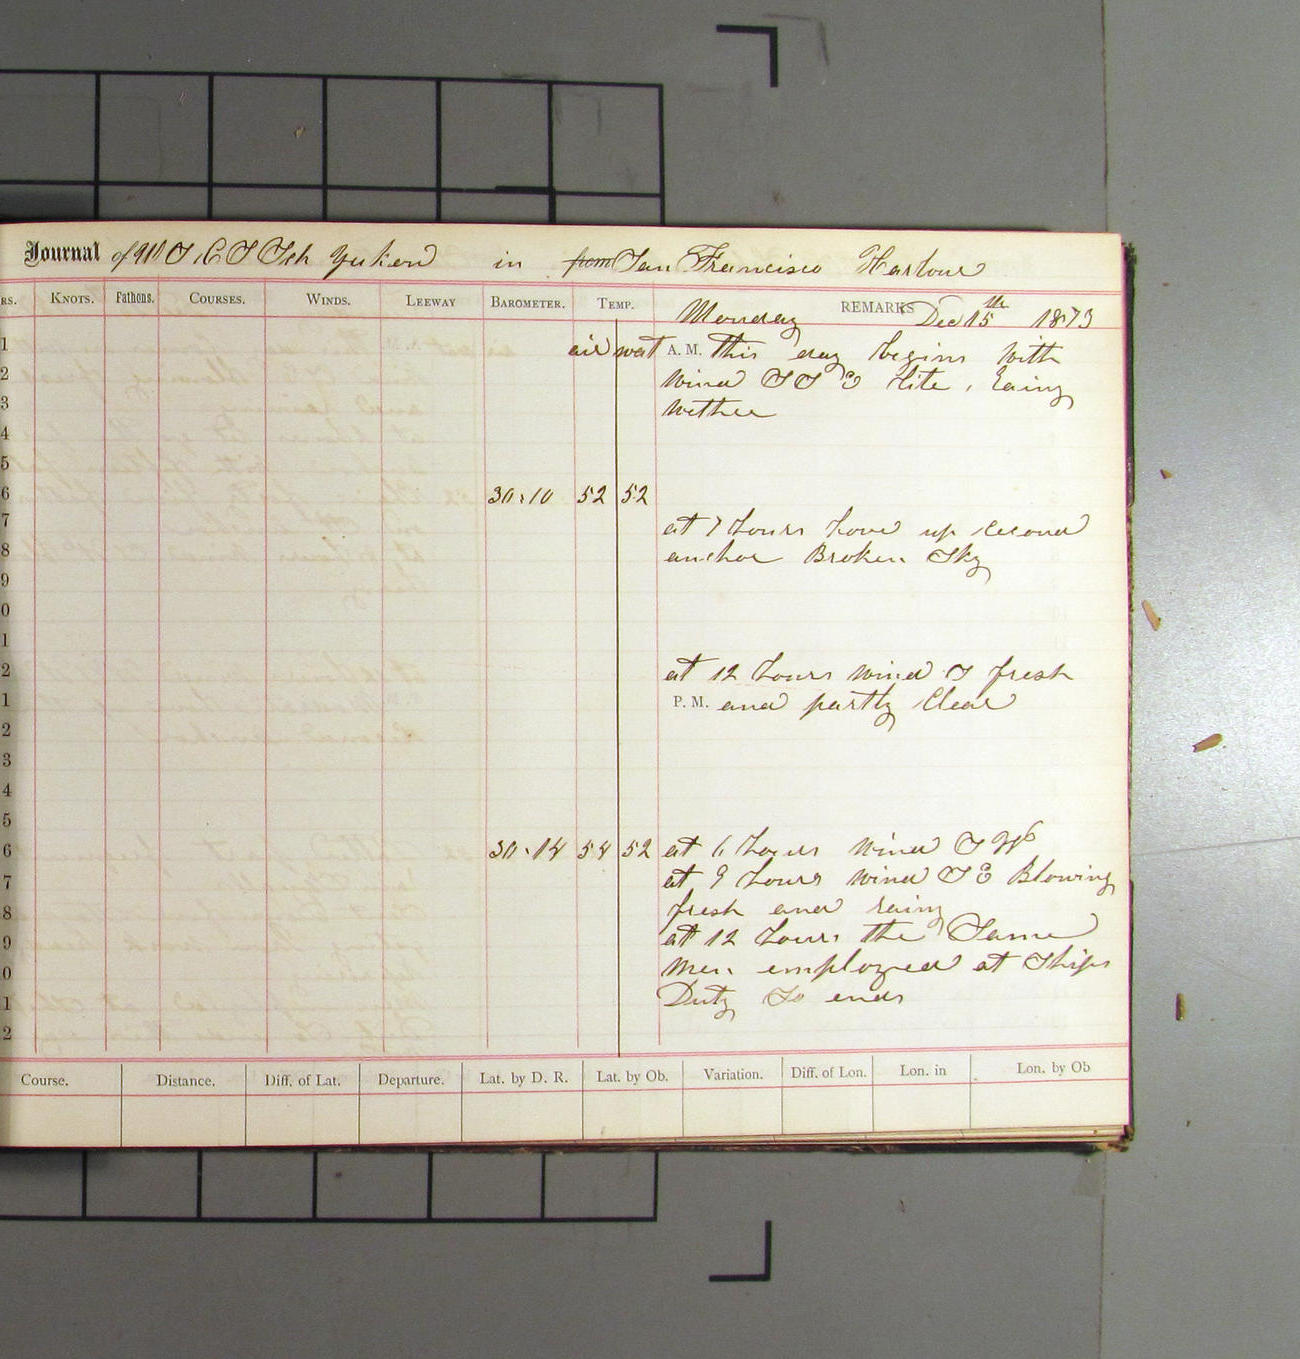 Journal of U S C S Sch Yukon in from San Francisco Harbour
RS. KNOTS. Fathoms. COURSES. WINDS. LEEWAY BAROMETER. TEMP. REMARKS
Monday Dec 15th 1873
1 air wat A. M. this day begins with
2 wind S S E lite, rainy
3 wether
4
5
6 30.10 52 52
7 at 7 hours hove up second
8 anchor Broken Sky
9
0
1
2 at 12 hours wind S fresh
1 P. M. and partly Clear
2
3
4
5
6 30.14 54 52 at 6 hours wind S W
7 at 9 hours wind S E Blowing
8 fresh and rainy
9 at 12 hours the Same
0 Men employed at Ships
1 Duty So ends
2
Course. Distance. Diff. of Lat. Departure. Lat. by D. R. Lat. by Ob. Variation. Diff. of Lon. Lon. in Lon. by Ob